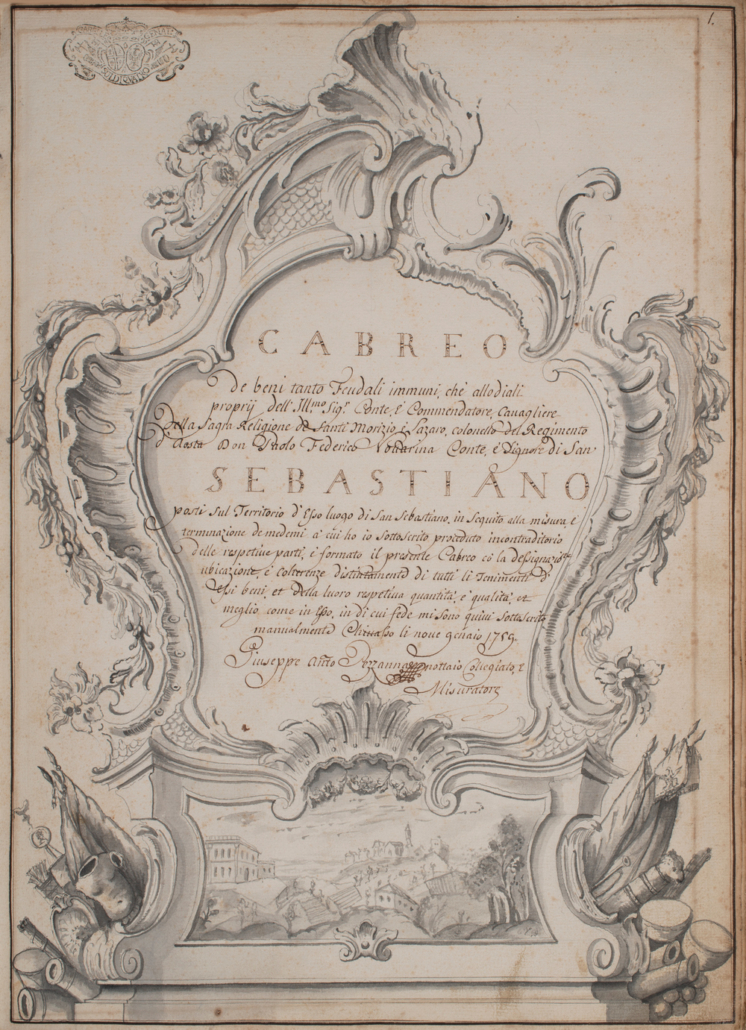 1.
CABREO
De beni tanto Feudali immuni, che allodiali
proprij dell' Ill.mo Sig.r Conte, e Commendatore, Cavagliere
Della Sagra Religione de Santi Morizio e Lazaro, colonello del Regimento
d'Aosta Don Paolo Federico Conte, e Signore di San
SEBASTIANO
posti sul Territorio d'esso luogo di San Sebastiano, in seguito alla misura, e
terminazione de medemi a cui ho io sottoscrito proceduto incontraditorio
delle respetive parti, e formato il presente Cabreo cô la dessignazio.ne
ubicazione, e coherenze distintamente di tutti li Tenimenti d'
essi beni, et della luoro respetiva quantità, e qualità, et
meglio come in esso, in di cui fede mi sono quivi sottoscrito
manualmente Chivasso li nove genaio 1759.
Giuseppe Ant.o nottaio Colleglato, e
Misuratore